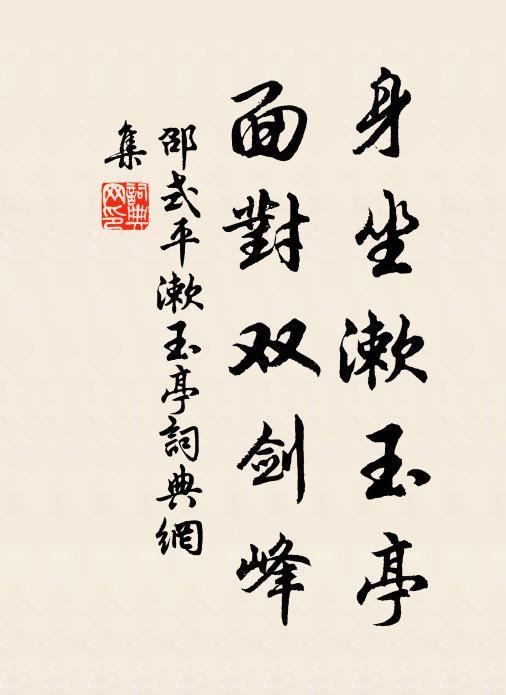 身坐漱玉亭
面對双剑峰
邵式平漱玉亭詞典網
集
詞典
网印